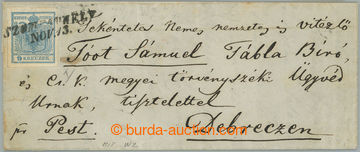 SZOMBATHELY
NOV. 13.
9 KREUZER
Tekéntetes Nemes nemzetes és vitézlő
Tóot Sámuel Tábla Biró,
és Cs. k. megyei törvényszéki Ügyvéd
Urnak, tisztelettel
pr Pest.
Debreczen
© burda-auction.com